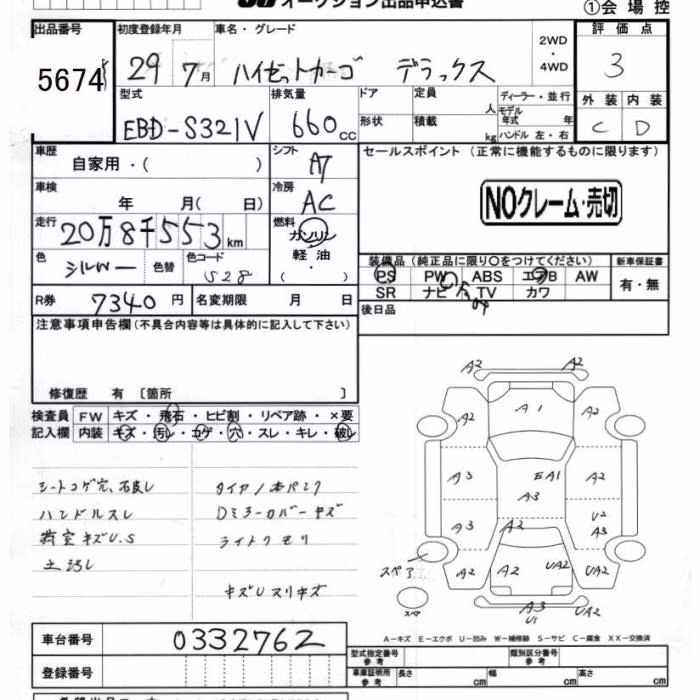 オークション出品申込書
①会場控
出品番号
5674
初度登録年月
29 7月
車名・グレード
ハイゼットカーゴ デラックス
2WD
・
4WD
評価点
3
外装 内装
C D
型式
EBD-S321V
排気量
660cc
ドア
形状
定員
人
積載
kg
ディーラー・並行
モデル
年式 年
ハンドル 左・右
車歴
自家用・( )
シフト
A7
セールスポイント (正常に機能するものに限ります)
NOクレーム・売切
車検
年 月( 日)
冷房
AC
走行
20万8千553km
燃料
ガソリン
・
軽油
( )
色
シルバー
色替
色コード
S28
装備品 (純正品に限り○をつけてください)
新車保証書
PS PW ABS エアB AW
SR ナビ TV カワ
有・無
R券
7340円
名変期限 月 日
後日品
注意事項申告欄 (不具合内容等は具体的に記入して下さい)
修復歴 有 〔箇所 〕
検査員
記入欄
FW キズ・飛石・ヒビ割・リペア跡・×要
内装 キズ・汚レ・コゲ・穴・スレ・キレ・破レ
シートコゲ穴、
ハンドルスレ
荷室キズU.S
土汚レ
タイヤ1本パンク
Dミラーカバーキズ
ライトクモリ
キズUスリキズ
A2 A2
A2 A1 A2
A3 EA1 A2
A3
A3 A2 U2
A3
スペア
A2 A2 UA2 UA2
スペア
A3 UA2
U1
A-キズ E-エクボ U-凹み W-補修跡 S-サビ C-腐食 XX-交換済
車台番号
0332762
登録番号
型式指定番号
参考
類別区分番号
参考
車庫証明用
参考
長さ cm 幅 cm 高さ cm